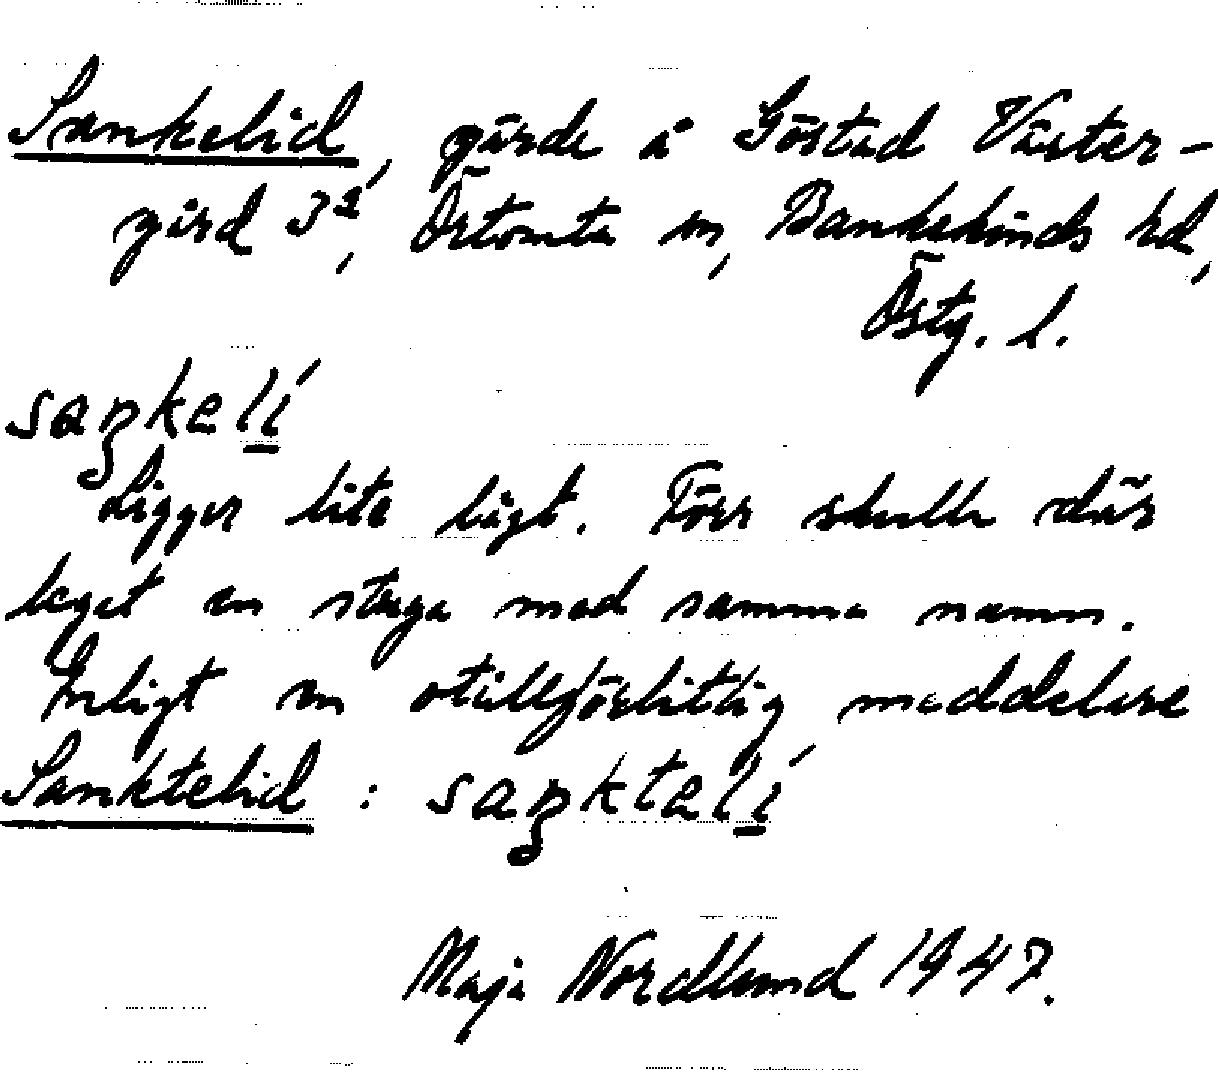 Sankelid, gärde å Göstad Väster-
gård 3², Örtomta sn, Bankekinds hd,
Östg. l.
saŋkelí
Ligger lite lågt. Förr skulle där
legat en stuga med samma namn.
Enligt en otillförlitlig meddelare
Sanktelid : saŋktelí
Maja Nordlund 1947.